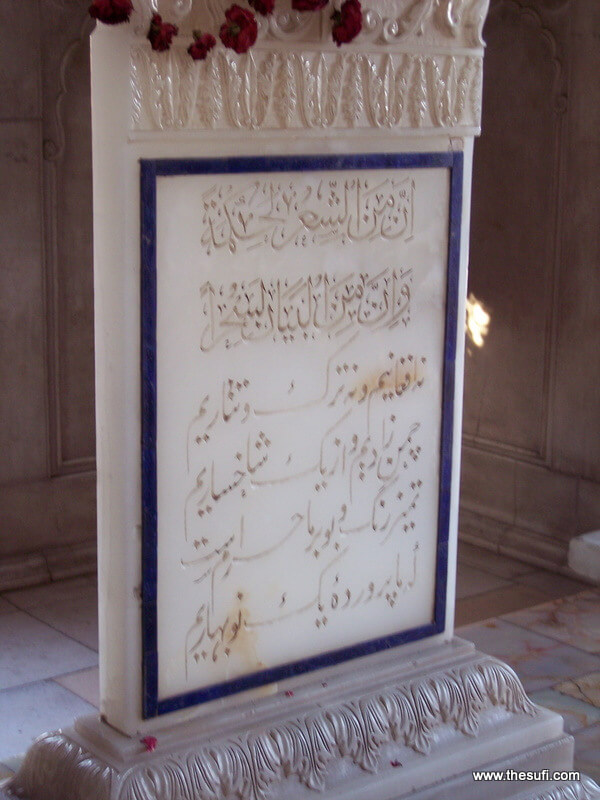 اِنَّ مِنَ الشِّعْرِ لَحِکْمَةً
وَاِنَّ مِنَ الْبَیَانِ لَسِحْرًا
نہ افغانیم و نہ ترک و تتاریم
چمن زادیم و از یک شاخساریم
تمیز رنگ و بو بر ما حرام است
کہ ما پروردۂ یک نوبہاریم
www.thesufi.com